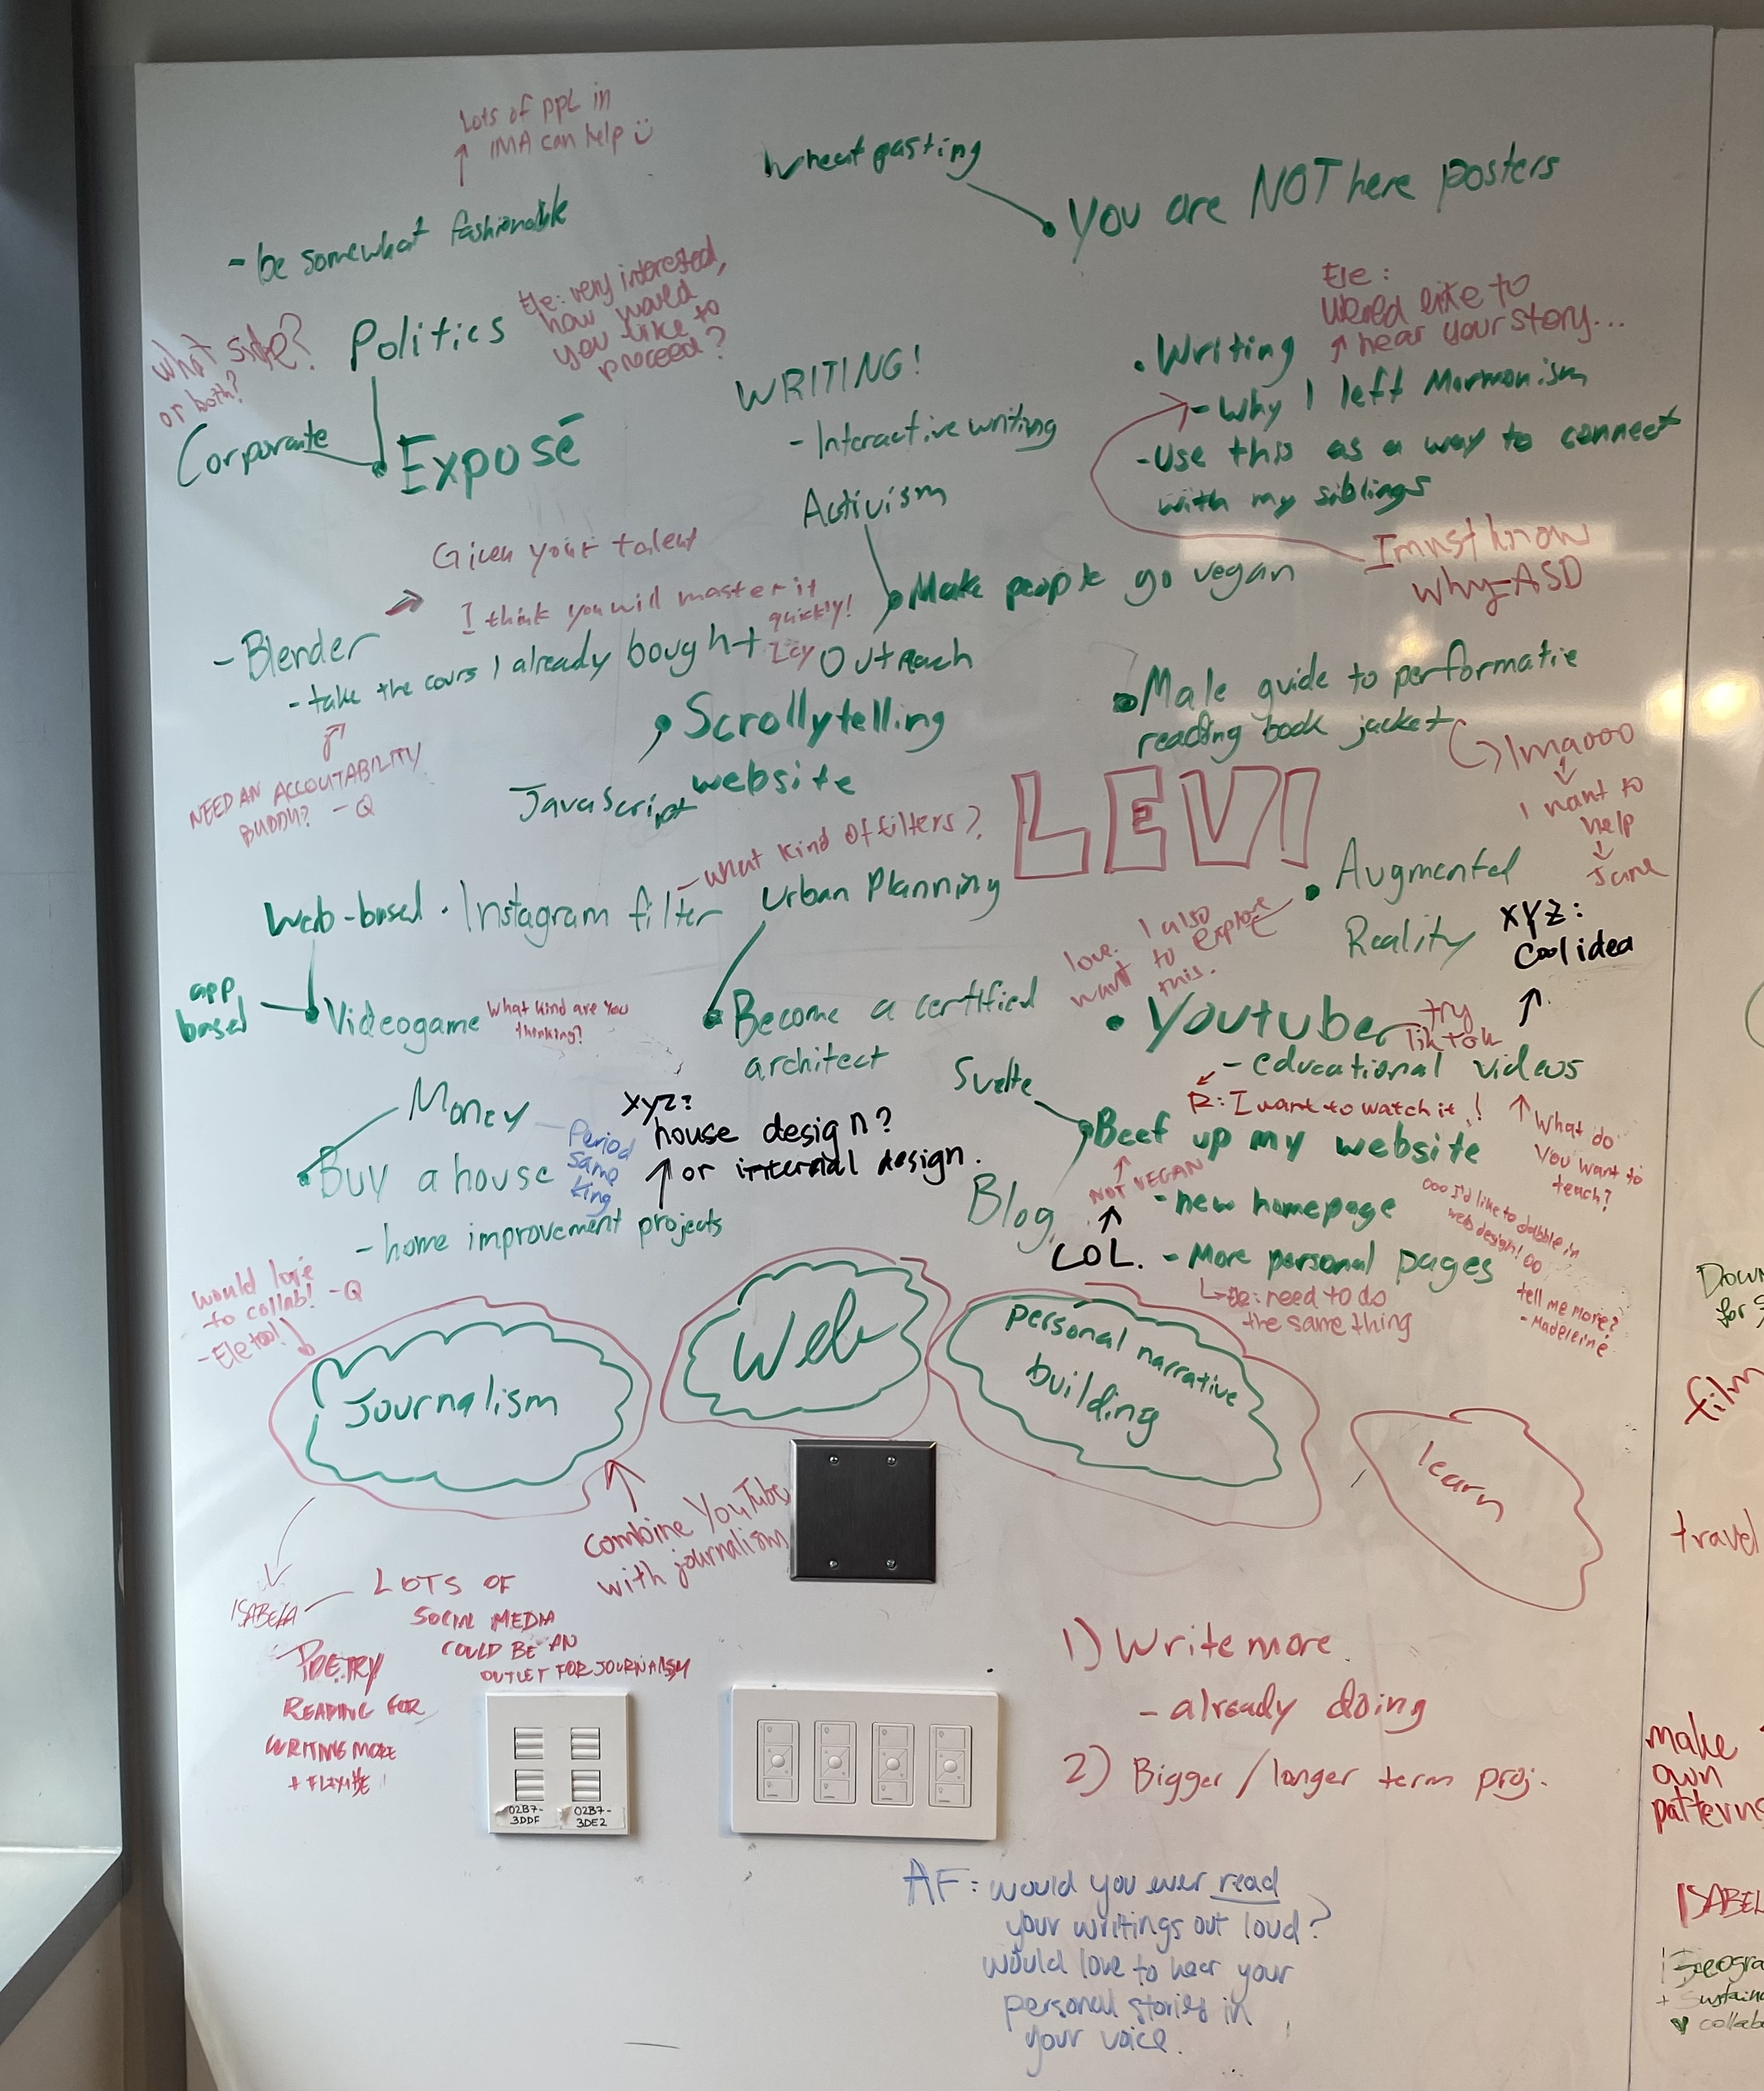 Lots of ppl in
IMA can help
- be somewhat fashionable
Wheat pasting
You are NOT here posters
What side?
or both?
Politics
Ele: very interested,
how would
you like to
proceed?
Corporate
Exposé
WRITING!
- Interactive writing
Activism
Ele:
Would like to
hear your story...
• Writing
- Why I left Mormonism
- Use this as a way to connect
with my siblings
I must know
why - ASD
Given your talent
I think you will master it
quickly!
Icy
- Blender
- take the cours I already bought
NEED AN ACCOUTABILITY
BUDDY? - Q
Make people go vegan
Outreach
Scrollytelling
website
JavaScript
Male guide to performatie
reading book jacket
lmaooo
I want to
help
Jane
LEVI
- what kind of filters?
Web-based
• Instagram filter
Urban Planning
• Augmented
Reality
love. I also
want to explore
this.
XYZ:
Cool idea
app
based
Videogame
What kind are you
thinking?
Become a certified
architect
• Youtuber
try
TikTok
- educational videos
R: I want to watch it!
What do
you want to
teach?
Money
Period
same
king
XYZ:
house design?
or internal design.
Buy a house
- home improvement projects
Svelte
Beef up my website
NOT VEGAN
LOL.
Blog
- new homepage
- More personal pages
ooo I'd like to dabble in
web design! oo
tell me more?
- Madeleine
Ele: need to do
the same thing
would love
to collab! - Q
- Ele too!
Journalism
Web
personal narrative
building
learn
combine YouTube
with journalism
ISABELA
LOTS OF
SOCIAL MEDIA
COULD BE AN
OUTLET FOR JOURNALISM
POETRY
READING FOR
WRITING MORE
1) Write more
- already doing
2) Bigger / longer term proj.
02B7-
3DDF
02B7-
3DE2
AF: would you ever read
your writings out loud?
would love to hear your
personal stories in
your voice.
film
travel
make
own
patterns
ISABEL